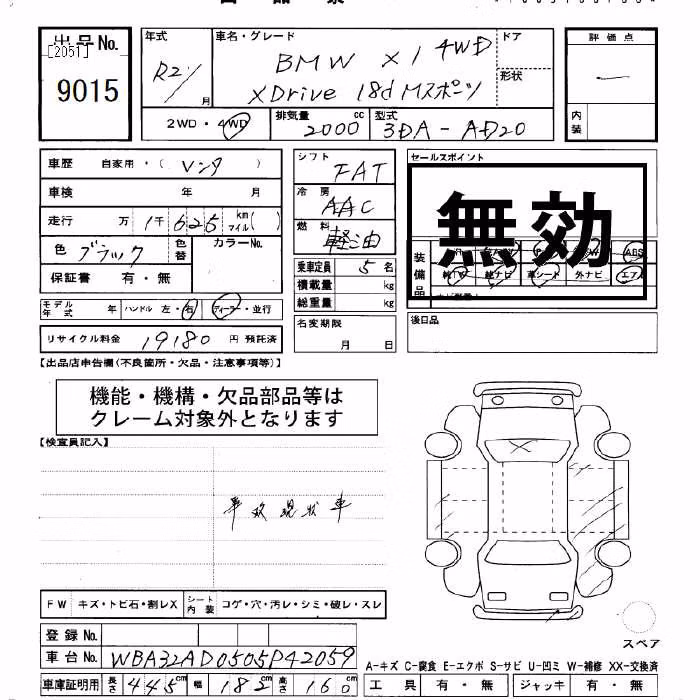 出品No.
[2051]
9015
年式 車名・グレード ドア
R2/ 月 BMW X1 4WD
XDrive 18d Mスポーツ 形状
評価点
内装
2WD・4WD 排気量 2000 cc 型式 3DA-AD20
車歴 自家用・( レンタ )
車検 年 月
走行 万 1千625 km マイル( )
色 ブラック 色替 カラーNo.
保証書 有・無
モデル年式 年 ハンドル 左・右 ディーラー・並行
リサイクル料金 19180 円 預託済
シフト FAT
冷房 AAC
燃料 軽油
乗車定員 5 名
積載量 kg
総重量 kg
名変期限 月 日
セールスポイント
無効
装備品
ABS
革シート 外ナビ エアB
後日品
【出品店申告欄(不良箇所・欠品・注意事項等)】
機能・機構・欠品部品等は
クレーム対象外となります
【検査員記入】
事故現状車
FW キズ・トビ石・割レX シート内装 コゲ・穴・汚レ・シミ・破レ・スレ
登録No.
車台No. WBA32AD0505P42059
車庫証明用 長さ 445cm 幅 182cm 高さ 160cm
スペア
A-キズ C-腐食 E-エクボ S-サビ U-凹ミ W-補修 XX-交換済
工具 有・無 ジャッキ 有・無